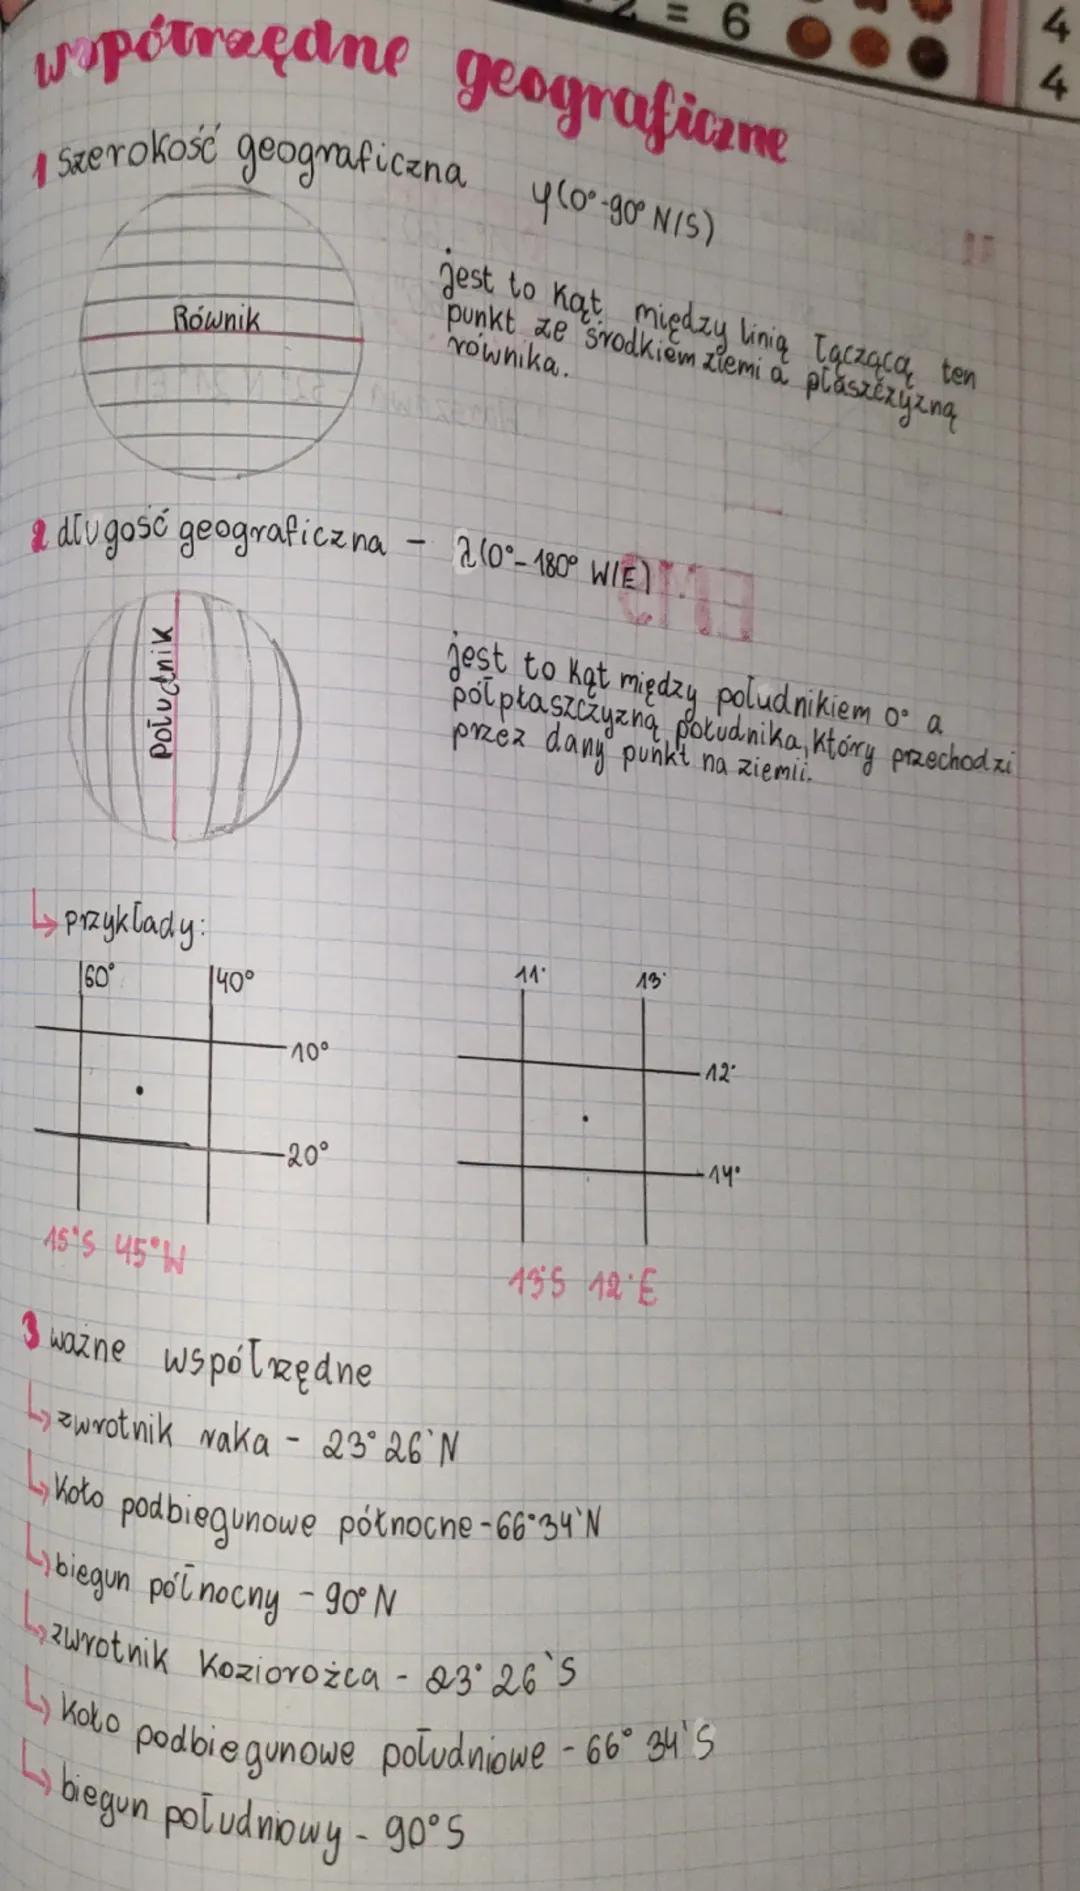 = 6
4
4
współrzędne geograficzne
1 szerokość geograficzna φ(0°-90° N/S)
Równik
jest to kąt między linią łączącą ten
punkt ze środkiem ziemi a płaszczyzną
równika.
2 długość geograficzna - λ(0°-180° W/E)
południk
jest to kąt między południkiem 0° a
półpłaszczyzną południka, który przechodzi
przez dany punkt na ziemii.
↳ przykłady:
60° 40°
10°
20°
15°S 45°W
11° 13°
12°
14°
13°S 12°E
3 ważne współrzędne
↳ zwrotnik raka - 23°26'N
↳ koło podbiegunowe północne - 66°34'N
↳ biegun północny - 90°N
↳ zwrotnik Koziorożca - 23°26'S
↳ koło podbiegunowe południowe - 66°34'S
↳ biegun południowy - 90°S